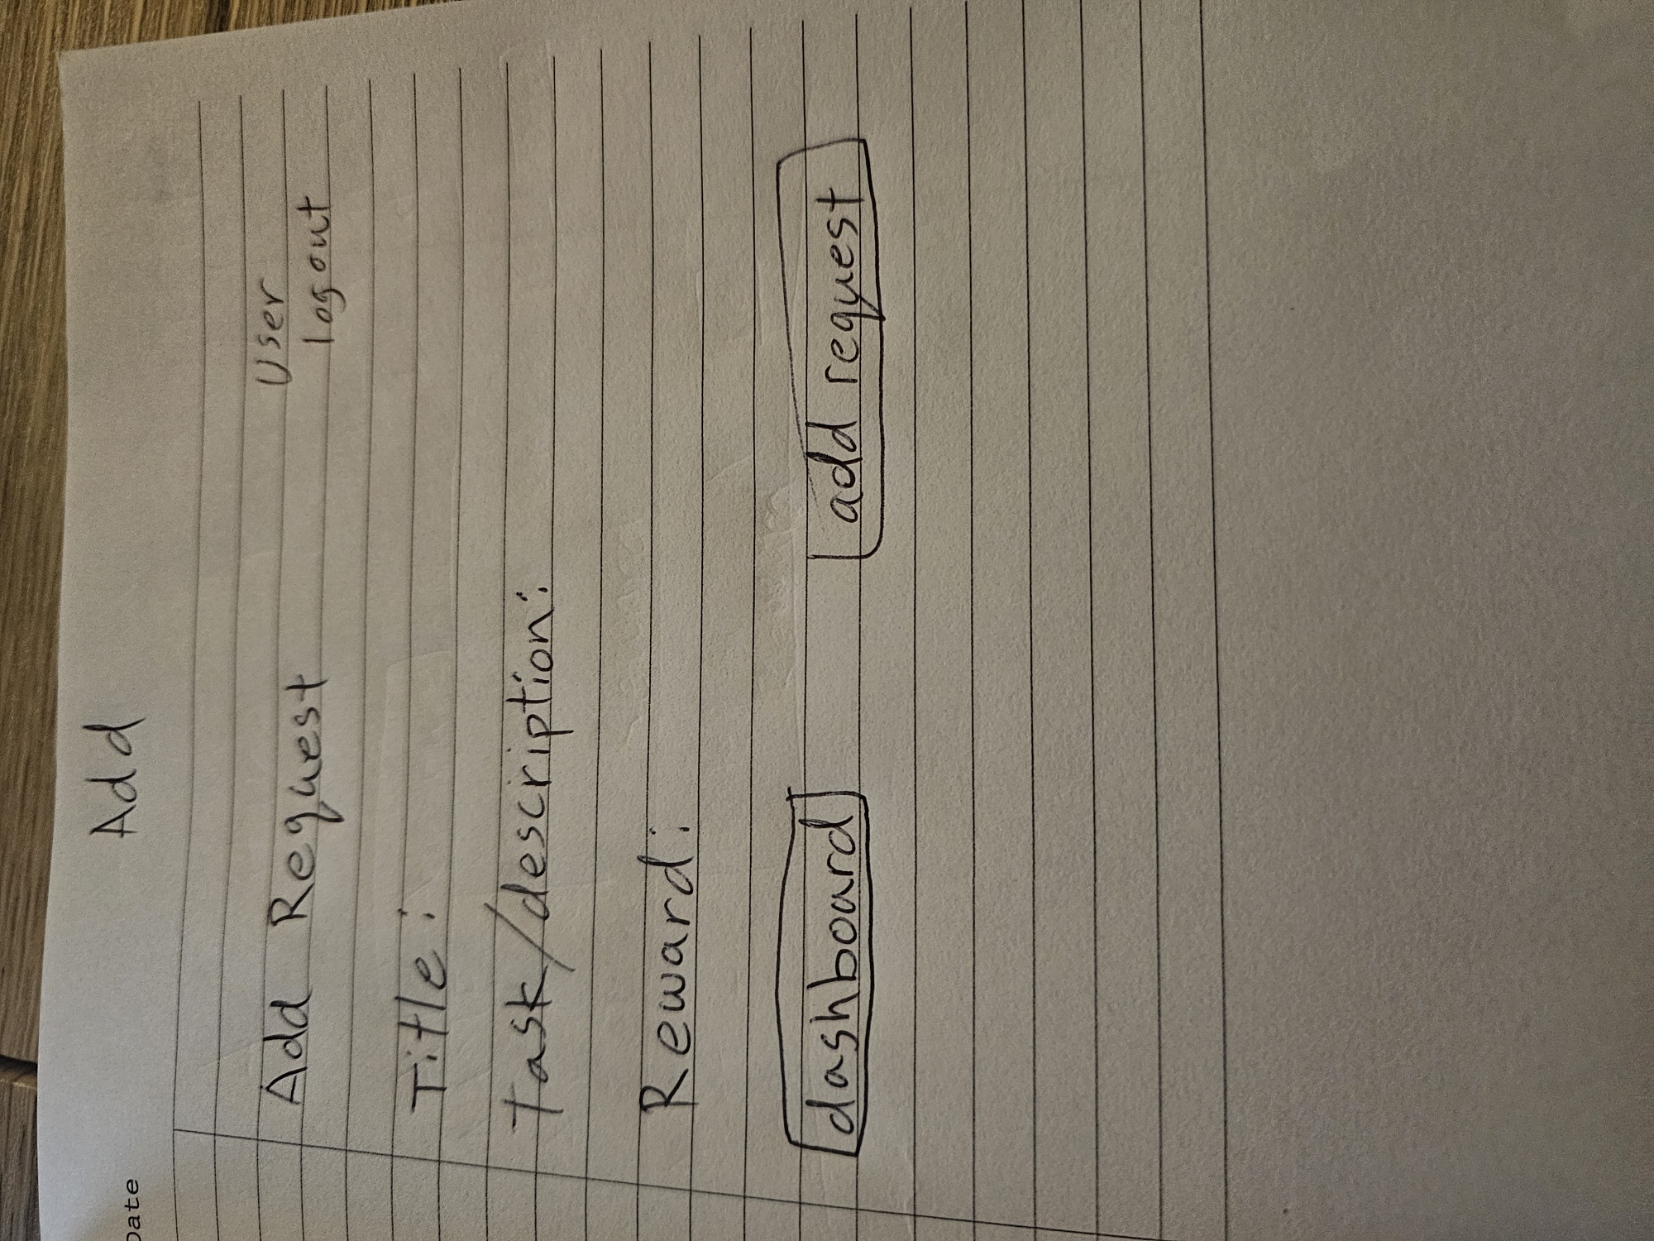 Date
Add
Add Request
User
logout
Title:
Task/description:
Reward:
dashboard
add request